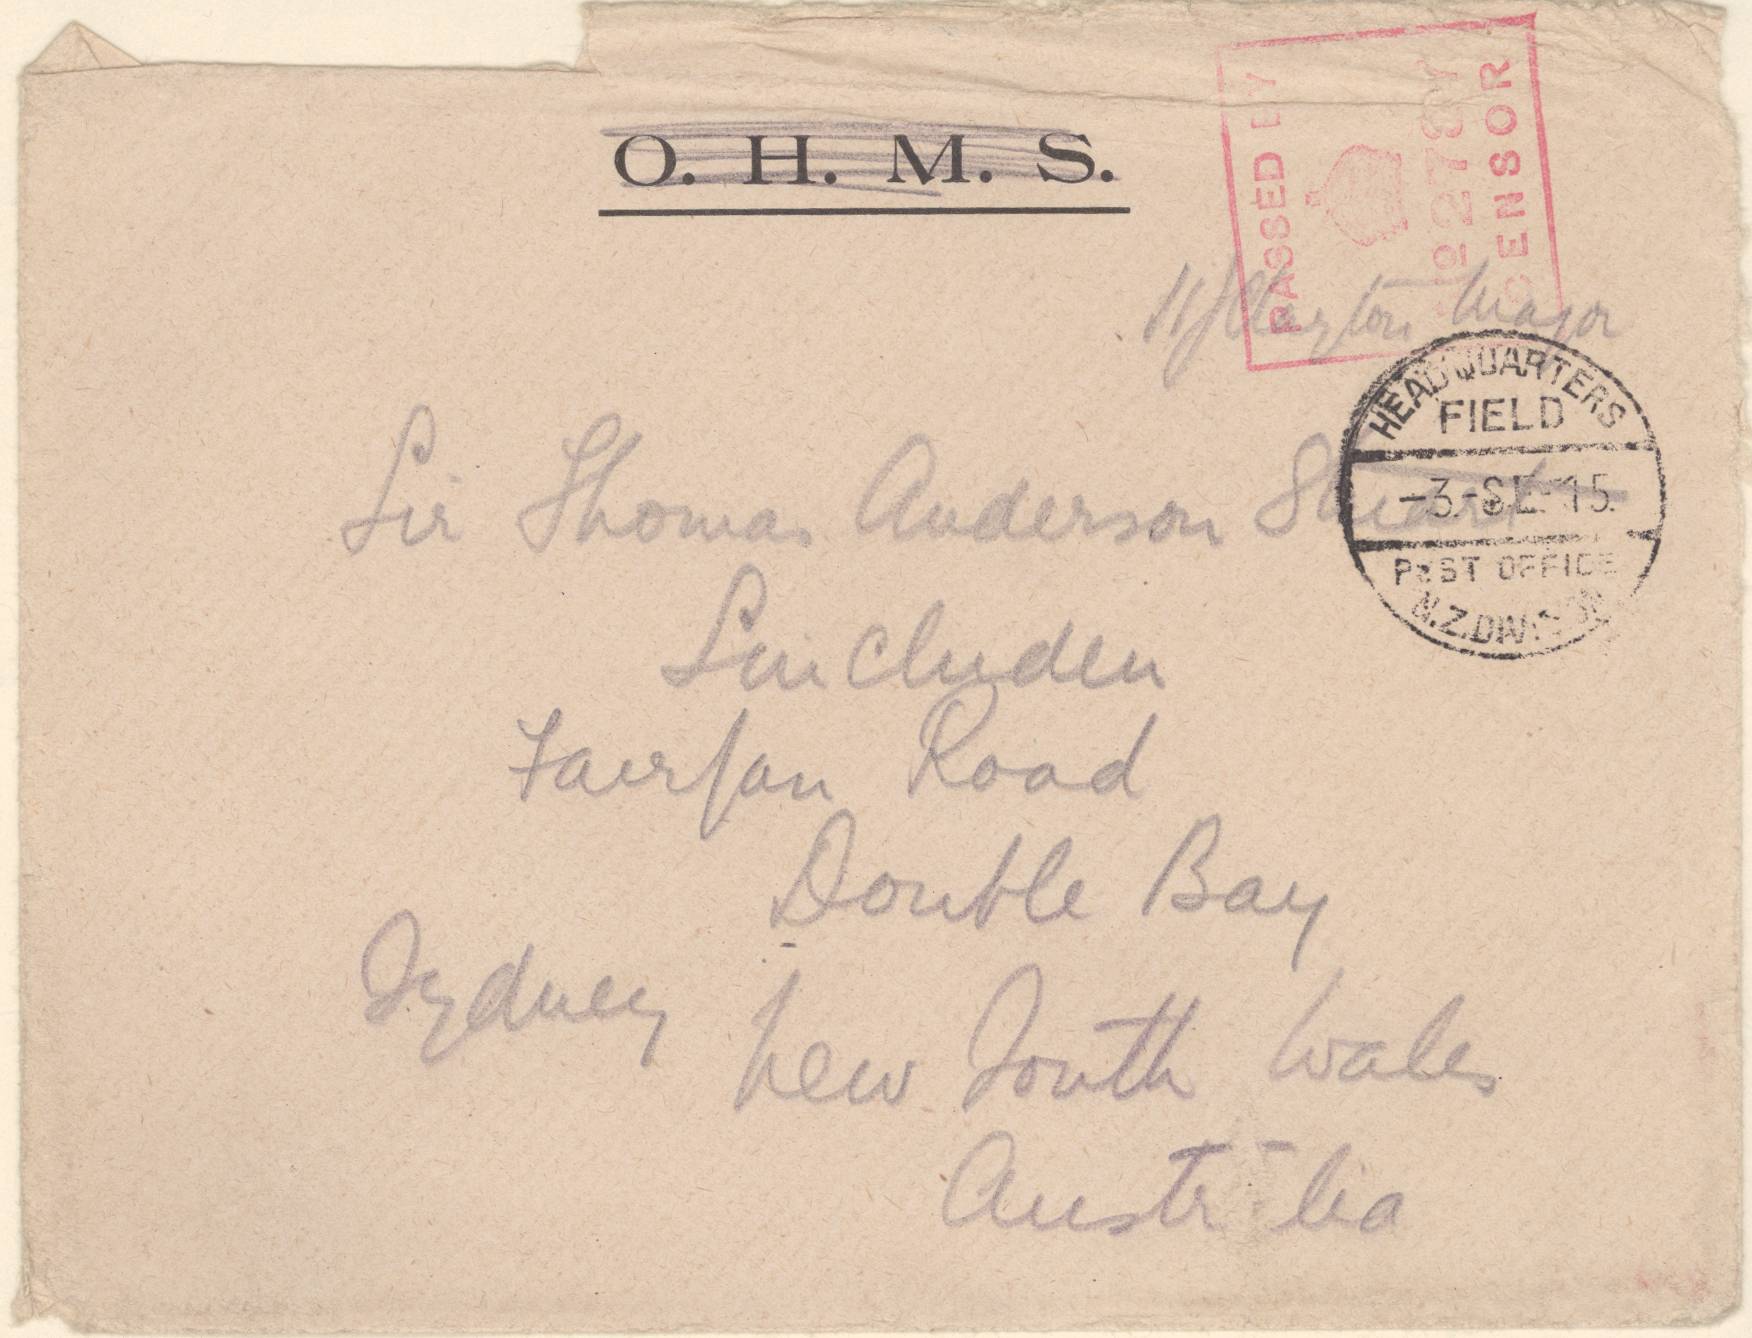 O. H. M. S.
PASSED BY
No 2787
CENSOR
Major
HEADQUARTERS
FIELD
-3.-SE.-15.
POST OFFICE
N.Z.DIVISION
Sir Thomas Anderson Stuart
Lincluden
Fairfax Road
Double Bay
Sydney New South Wales
Australia